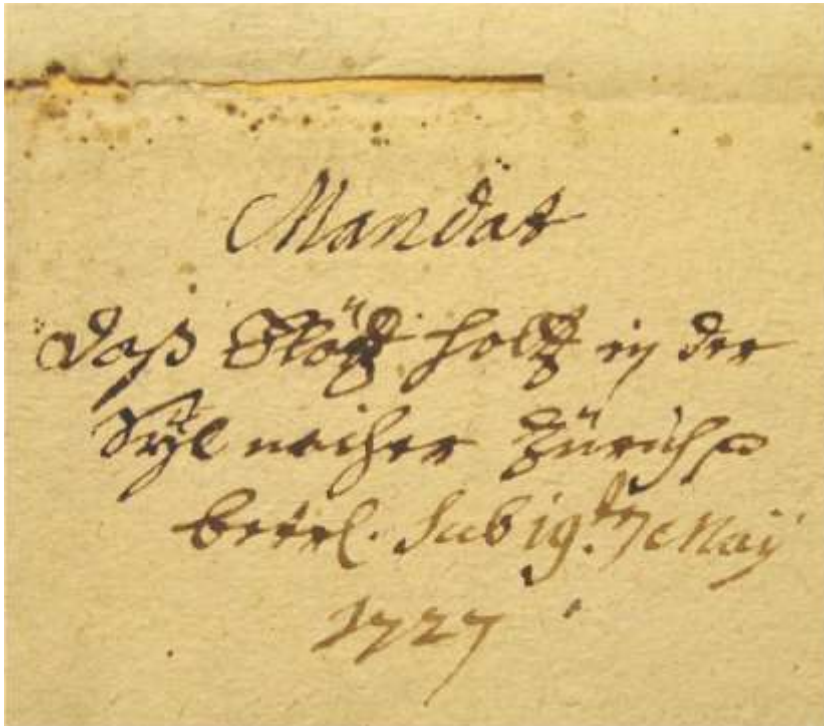 Mandat
daß Flötz holtz in der
Syl nacher Zürich
betrel. Sub 19.ᵗᵉⁿ Maij
1727